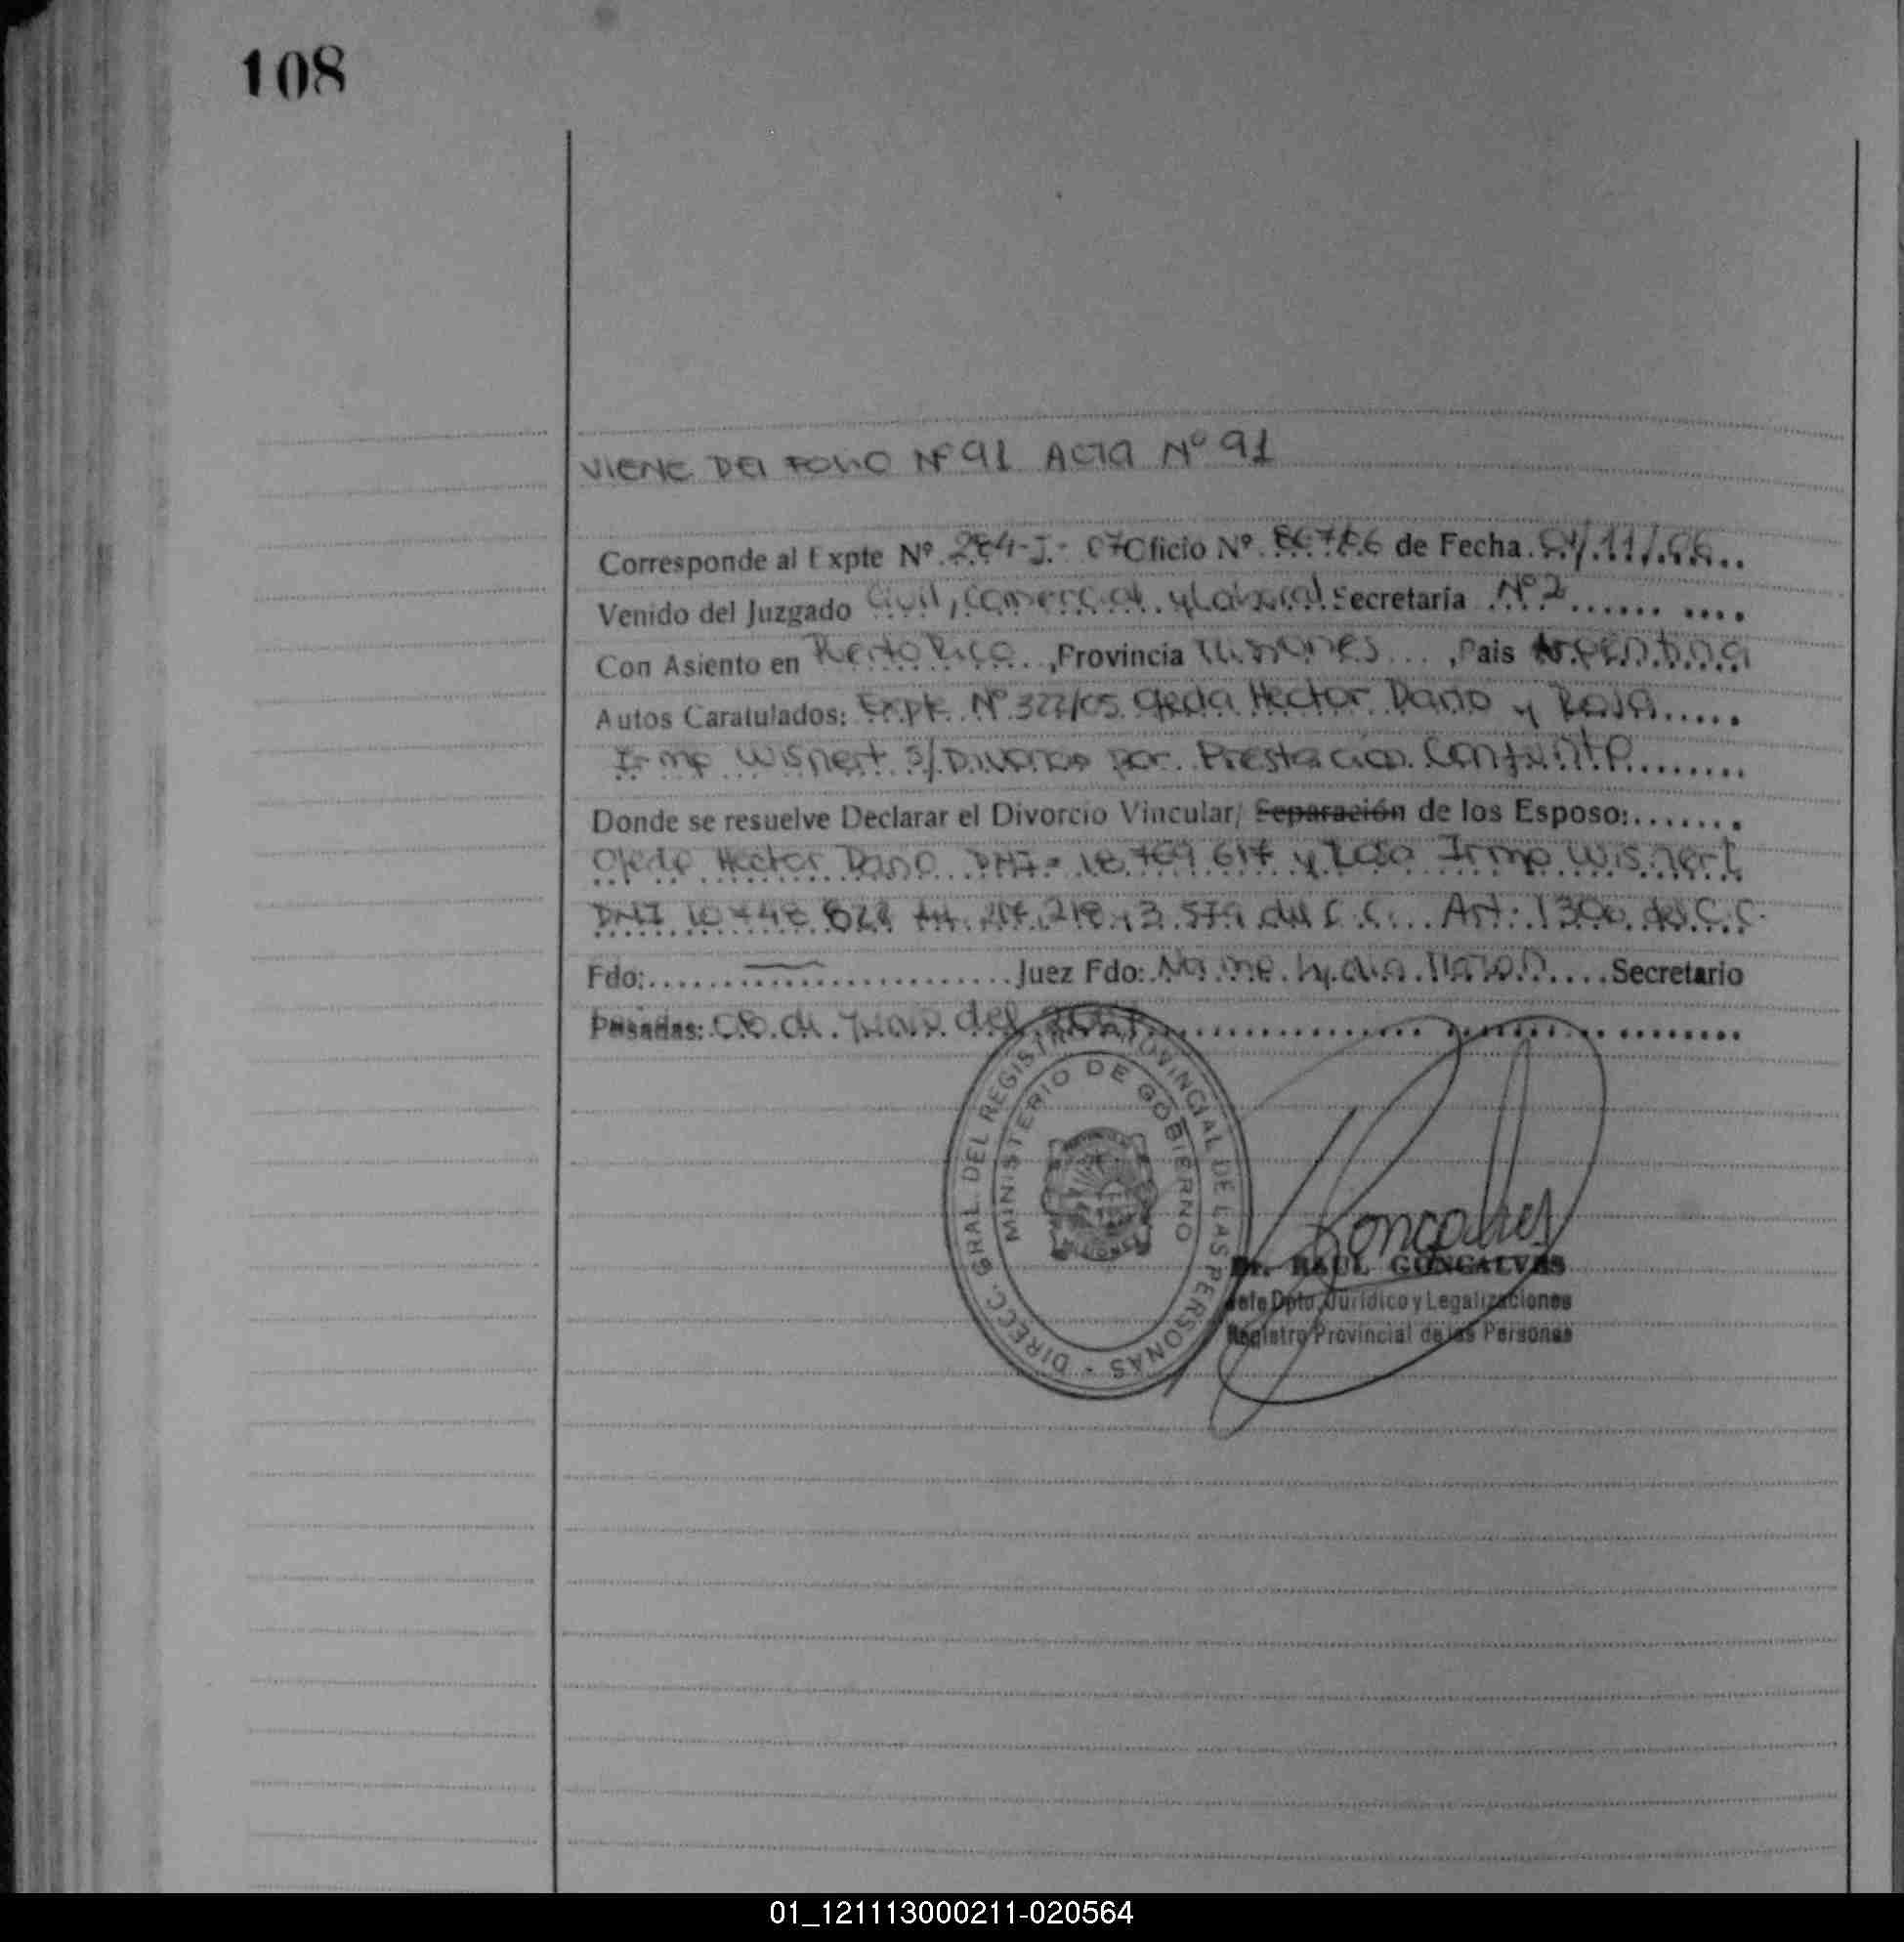 108
VIENE DEl FOLIO Nº 91 ACTA Nº 91
Corresponde al Expte Nº 284-J.- 07 Oficio Nº de Fecha
Venido del Juzgado Civil, Comercial y Laboral Secretaría Nº 2
Con Asiento en Puerto Rico, Provincia Misiones, Pais Argentina
Autos Caratulados: Expte Nº 322/05 Ojeda Hector Dario y Rosa
Irma Wisnert S/ Divorcio por Prestacion Conjunta
Donde se resuelve Declarar el Divorcio Vincular/ Separación de los Esposo:
Ojeda Hector Dario DNI- 18.769.617 y Rosa Irma Wisnert
DNI Art. 217, 218 y 3.574 del C.C. Art. 1306 del C.C.
Fdo: Juez Fdo: Lydia Secretario
Posadas: 08 de del
DIRECC. GRAL. DEL REGISTRO PROVINCIAL DE LAS PERSONAS
MINISTERIO DE GOBIERNO
MISIONES
Goncalves
Dr. RAUL GONCALVES
Jefe Dpto. Jurídico y Legalizaciones
Registro Provincial de las Personas
01_121113000211-020564